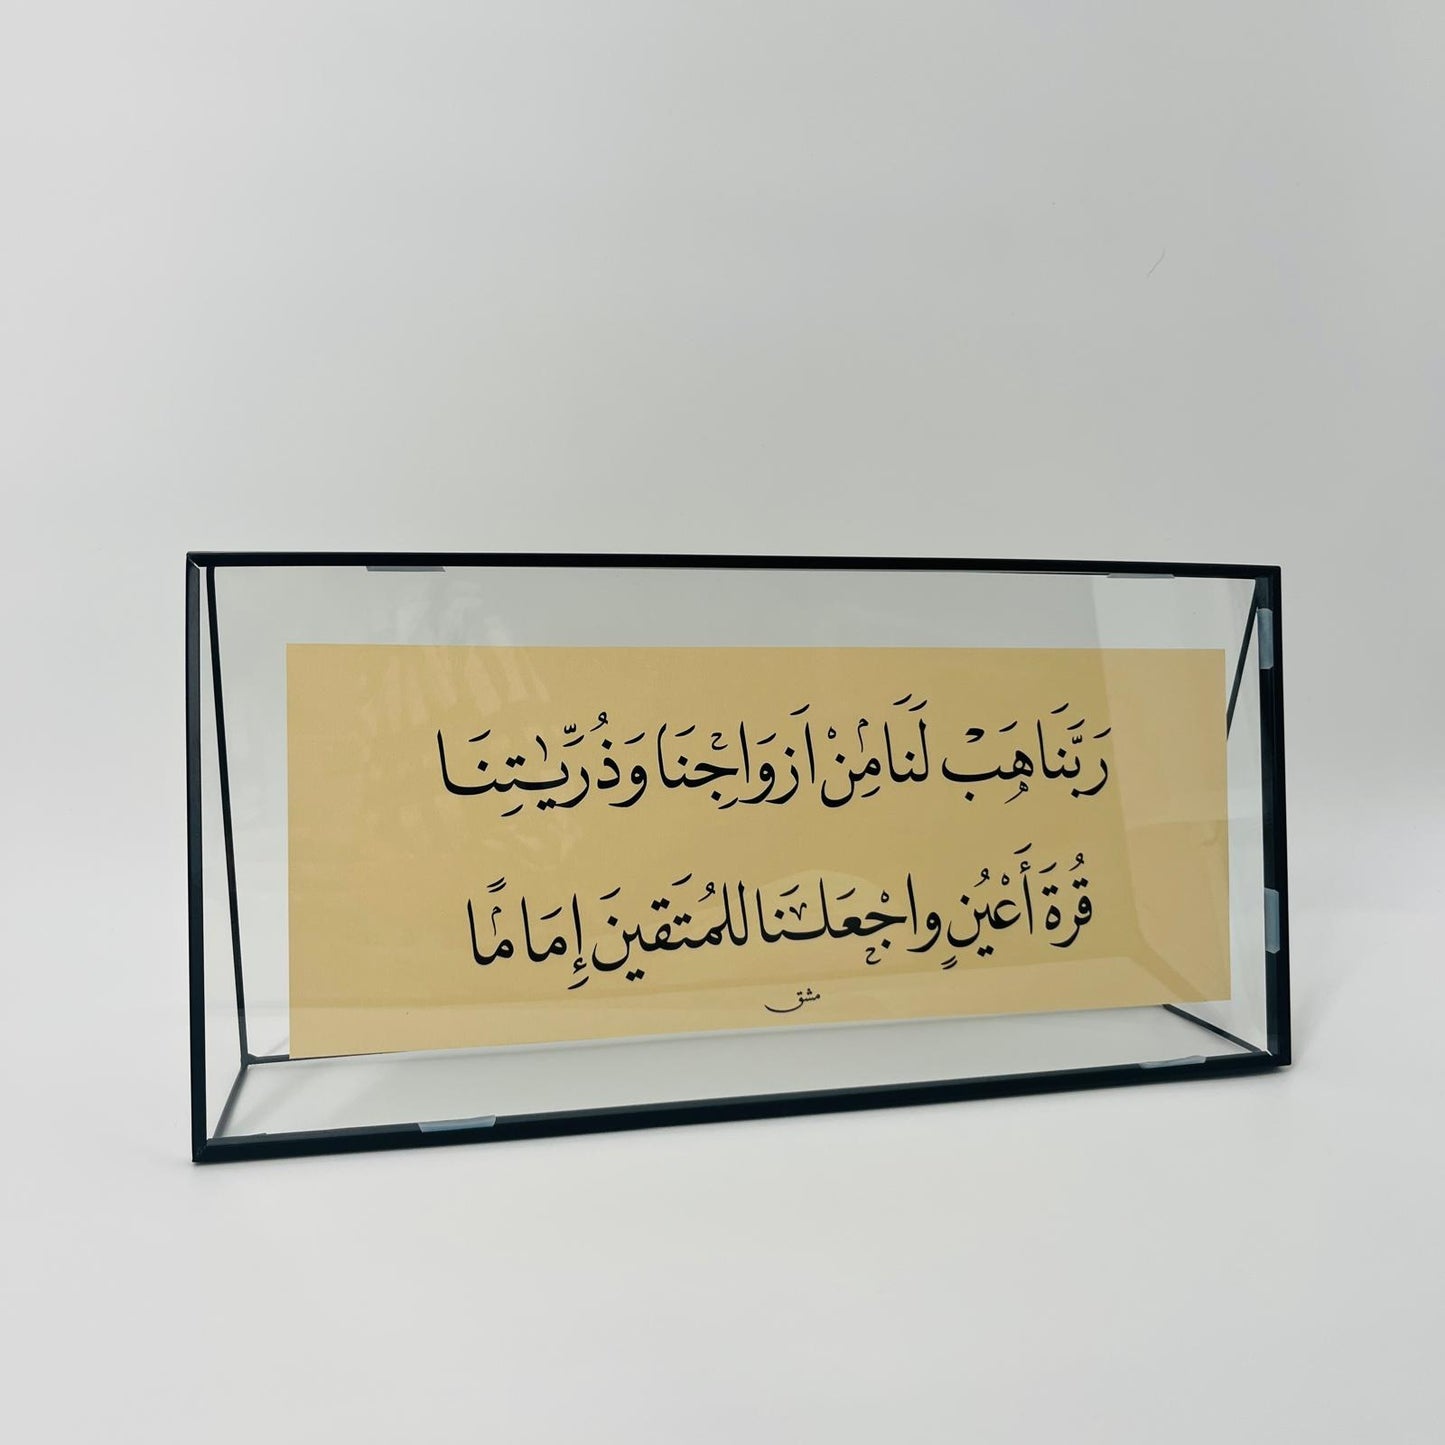 رَبَّنَا هَبْ لَنَا مِنْ اَزوَاجِنَا وَذُرِّيّٰتِنَا
قُرةَ أَعْيُنٍ واجْعَلنَا للمُتَقينَ إِمَامًا
مشق